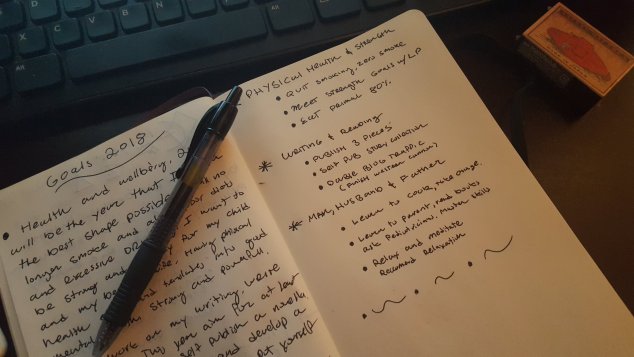 Goals 2018
Health and wellbeing, 2
will be the year that I
the best shape possible no
longer smoke and poor diet
and excessive I want to do
be strong and for my child
and my Having physical
health and into good
mental strong and powerful.
work on my writing, write
This year aim for at least
self publish a novella
and develop a
put yourself
PHYSICAL HEALTH & STRENGTH
QUIT SMOKING, ZERO SMOKE
MEET STRENGTH GOALS w/ LP
EAT PRIMAL 80%.
WRITING & READING
PUBLISH 3 PIECES
SELF PUB STORY COLLECTION
DOUBLE BLOG TRAFFIC
MAN, HUSBAND & FATHER
Learn to cook, take charge.
Learn to Parent, read books
ask Pediatricians, Master skills
Relax and meditate
Recommit Relaxation